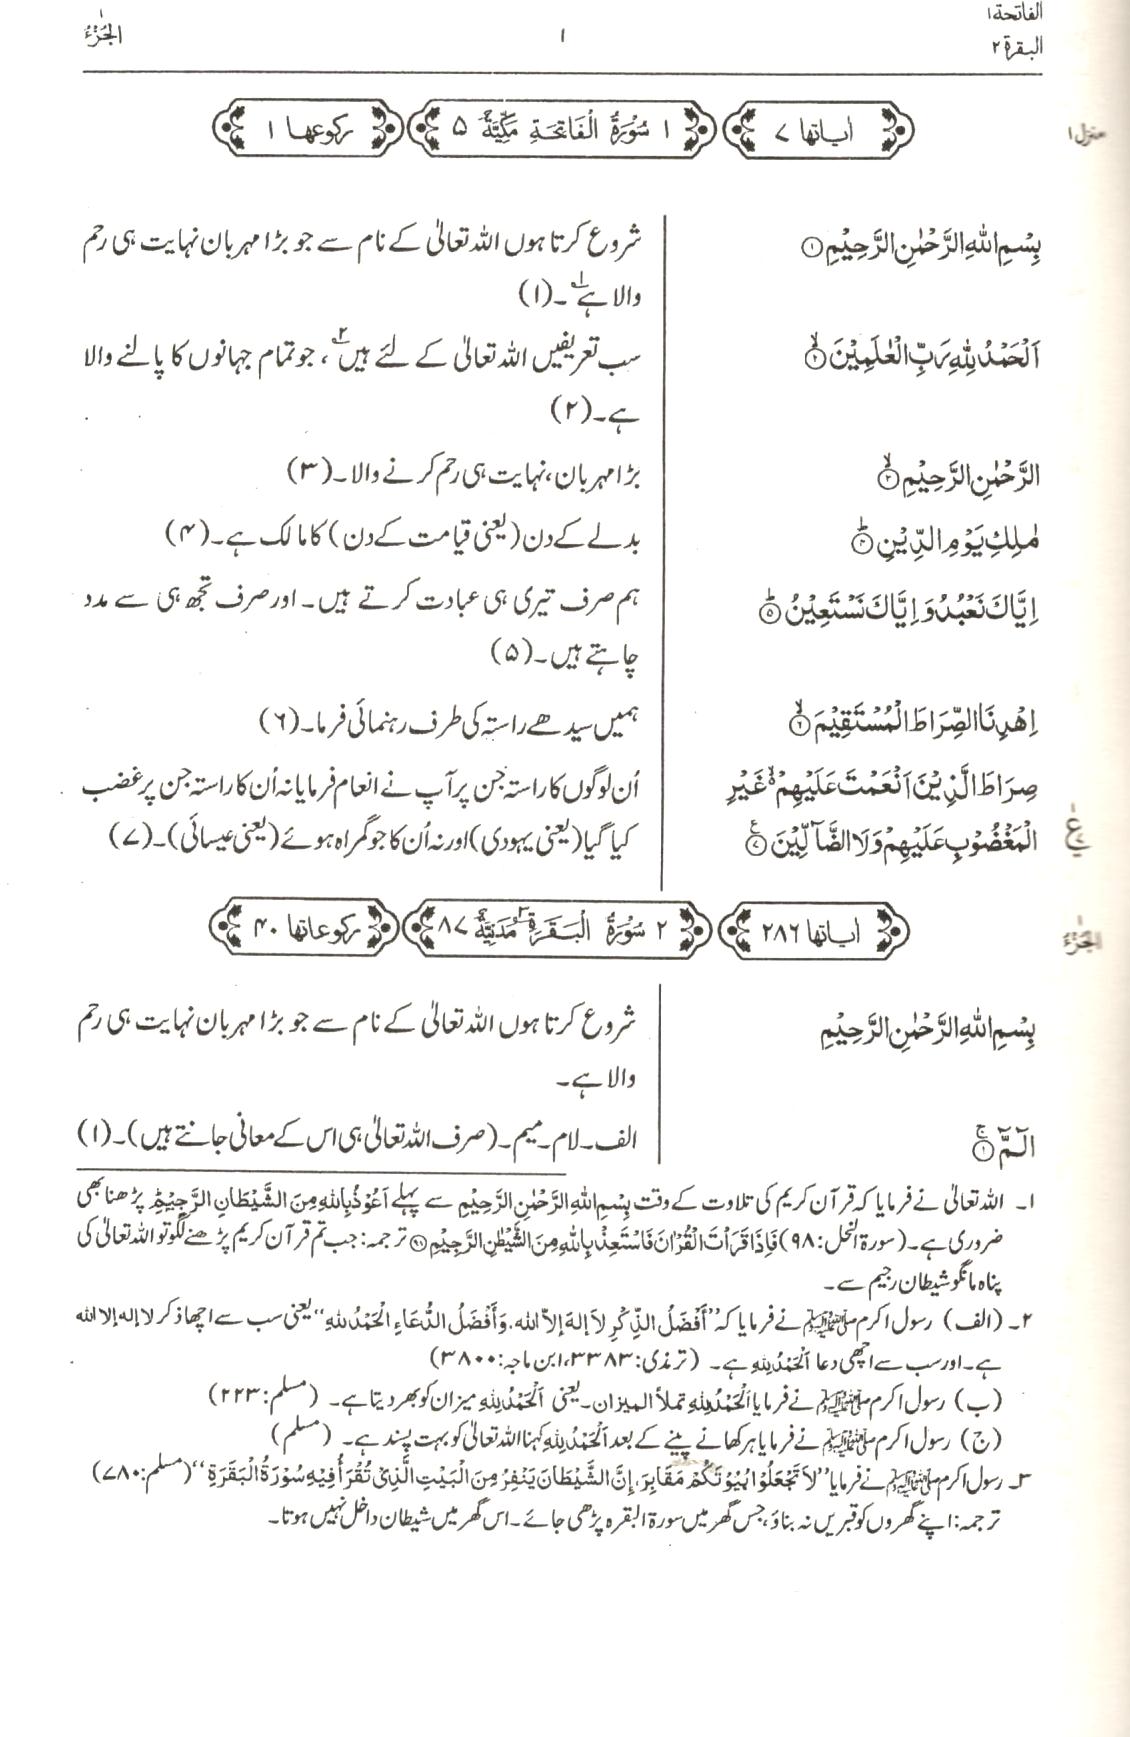 الفاتحة ۱
البقرة ۲
۱
الجزء ۱
منزل ۱
اٰیاتها ۷
۱ سُوْرَةُ الْفَاتِحَةِ مَكِّيَّةٌ ۵
رکوعها ۱
بِسْمِ اللهِ الرَّحْمٰنِ الرَّحِيْمِ ۝۱
شروع کرتا ہوں اللہ تعالیٰ کے نام سے جو بڑا مہربان نہایت ہی رحم
والا ہے۱۔ (۱)
اَلْحَمْدُ لِلّٰهِ رَبِّ الْعٰلَمِيْنَ ۝۲ۙ
سب تعریفیں اللہ تعالیٰ کے لئے ہیں۲، جو تمام جہانوں کا پالنے والا
ہے۔ (۲)
الرَّحْمٰنِ الرَّحِيْمِ ۝۳ۙ
بڑا مہربان، نہایت ہی رحم کرنے والا۔ (۳)
مٰلِكِ يَوْمِ الدِّيْنِ ۝۴ؕ
بدلے کے دن (یعنی قیامت کے دن) کا مالک ہے۔ (۴)
اِيَّاكَ نَعْبُدُ وَ اِيَّاكَ نَسْتَعِيْنُ ۝۵ؕ
ہم صرف تیری ہی عبادت کرتے ہیں۔ اور صرف تجھ ہی سے مدد
چاہتے ہیں۔ (۵)
اِهْدِنَا الصِّرَاطَ الْمُسْتَقِيْمَ ۝۶ۙ
ہمیں سیدھے راستہ کی طرف رہنمائی فرما۔ (۶)
صِرَاطَ الَّذِيْنَ اَنْعَمْتَ عَلَيْهِمْ ۙ غَيْرِ
الْمَغْضُوْبِ عَلَيْهِمْ وَلَا الضَّآلِّيْنَ ۝۷ۧ
اُن لوگوں کا راستہ جن پر آپ نے انعام فرمایا نہ اُن کا راستہ جن پر غضب
کیا گیا (یعنی یہودی) اور نہ اُن کا جو گمراہ ہوئے (یعنی عیسائی)۔ (۷)
اٰیاتها ۲۸۶
۲ سُوْرَةُ الْبَقَرَةِ۳ مَدَنِيَّةٌ ۸۷
رکوعاتها ۴۰
الجزء ۱
بِسْمِ اللهِ الرَّحْمٰنِ الرَّحِيْمِ
شروع کرتا ہوں اللہ تعالیٰ کے نام سے جو بڑا مہربان نہایت ہی رحم
والا ہے۔
الٓمّٓ ۝۱ۚ
الف۔ لام۔ میم۔ (صرف اللہ تعالیٰ ہی اس کے معانی جانتے ہیں)۔ (۱)
۱۔ اللہ تعالیٰ نے فرمایا کہ قرآن کریم کی تلاوت کے وقت بِسْمِ اللهِ الرَّحْمٰنِ الرَّحِيْمِ سے پہلے اَعُوْذُ بِاللهِ مِنَ الشَّيْطَانِ الرَّجِيْمِ پڑھنا بھی
ضروری ہے۔ (سورۃ النحل: ۹۸) فَاِذَا قَرَاْتَ الْقُرْاٰنَ فَاسْتَعِذْ بِاللهِ مِنَ الشَّيْطٰنِ الرَّجِيْمِ ۝۹۸ ترجمہ: جب تم قرآن کریم پڑھنے لگو تو اللہ تعالیٰ کی
پناہ مانگو شیطان رجیم سے۔
۲۔ (الف) رسول اکرم ﷺ نے فرمایا کہ "أَفْضَلُ الذِّكْرِ لاَ إِلهَ إِلاَّ الله، وَأَفْضَلُ الدُّعَاءِ الْحَمْدُ للهِ" یعنی سب سے اچھا ذکر لا إله إلا الله
ہے۔ اور سب سے اچھی دعا اَلْحَمْدُ لِلهِ ہے۔ (ترمذی: ۳۳۸۳، ابن ماجہ: ۳۸۰۰)
(ب) رسول اکرم ﷺ نے فرمایا اَلْحَمْدُ لِلهِ تملأ الميزان۔ یعنی اَلْحَمْدُ لِلهِ میزان کو بھر دیتا ہے۔ (مسلم: ۲۲۳)
(ج) رسول اکرم ﷺ نے فرمایا ہر کھانے پینے کے بعد اَلْحَمْدُ لِلهِ کہنا اللہ تعالیٰ کو بہت پسند ہے۔ (مسلم)
۳۔ رسول اکرم ﷺ نے فرمایا "لاَ تَجْعَلُوْا بُيُوْتَكُمْ مَقَابِرَ، إِنَّ الشَّيْطَانَ يَنْفِرُ مِنَ الْبَيْتِ الَّذِيْ تُقْرَأُ فِيْهِ سُوْرَةُ الْبَقَرَةِ" (مسلم: ۷۸۰)
ترجمہ: اپنے گھروں کو قبریں نہ بناؤ، جس گھر میں سورۃ البقرہ پڑھی جائے۔ اس گھر میں شیطان داخل نہیں ہوتا۔